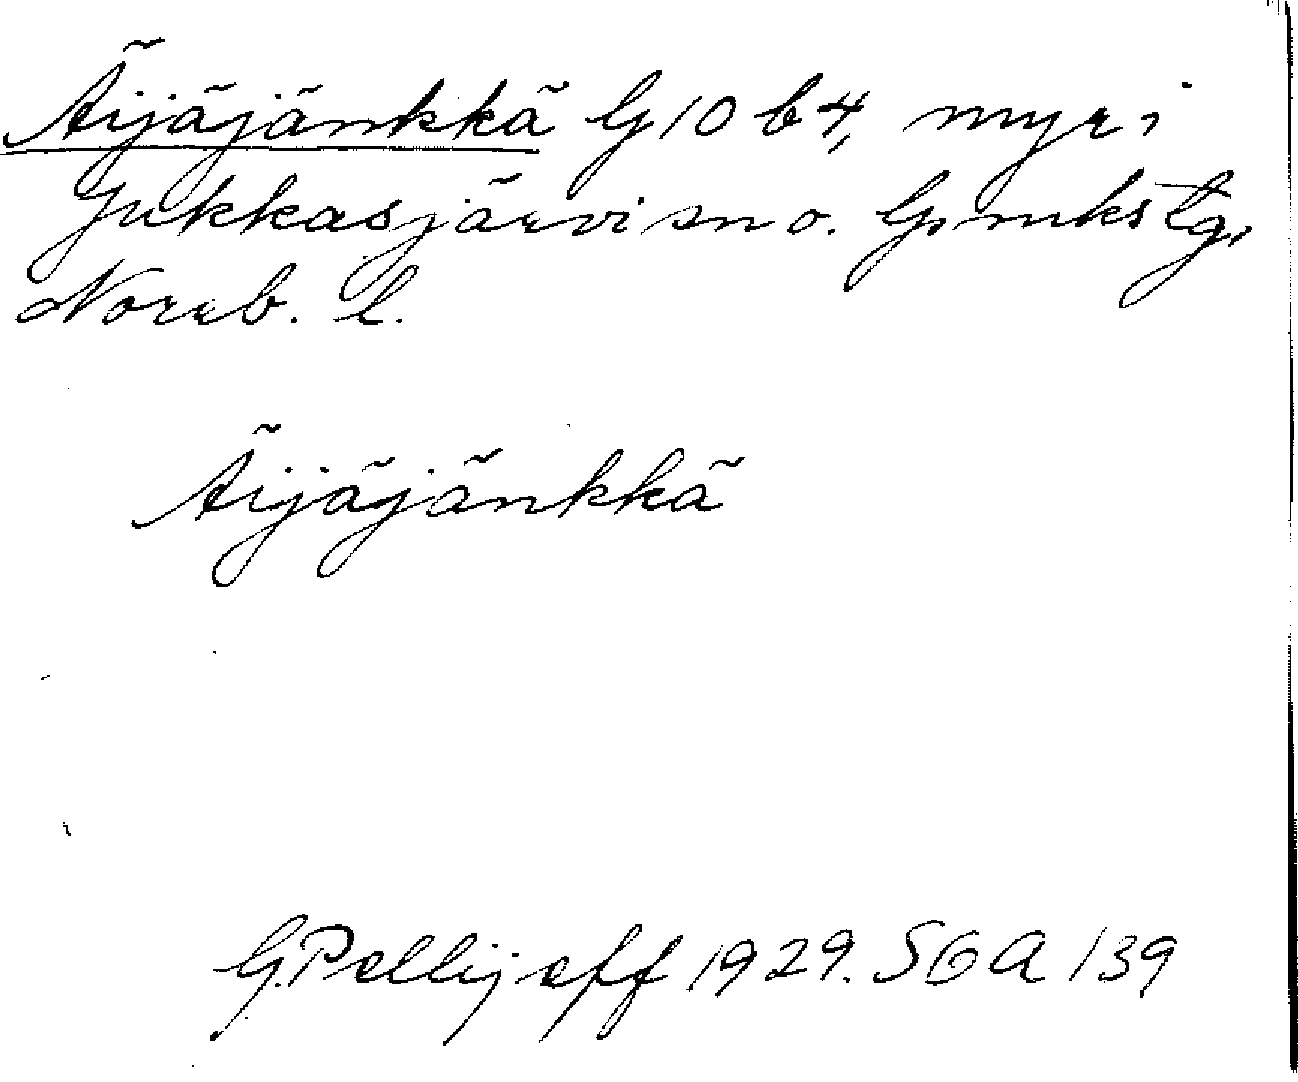 Äijäjänkkä G 10 b 4, myr i
Jukkasjärvi sn o. G,mks tg,
Norrb. l.
Äijäjänkkä
G. Pellijeff 1929. SGA 139